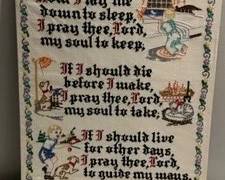 Now I lay me
down to sleep,
I pray thee, Lord,
my soul to keep,
If I should die
before I wake,
I pray thee, Lord,
my soul to take,
If I should live
for other days,
I pray thee, Lord,
to guide my ways.